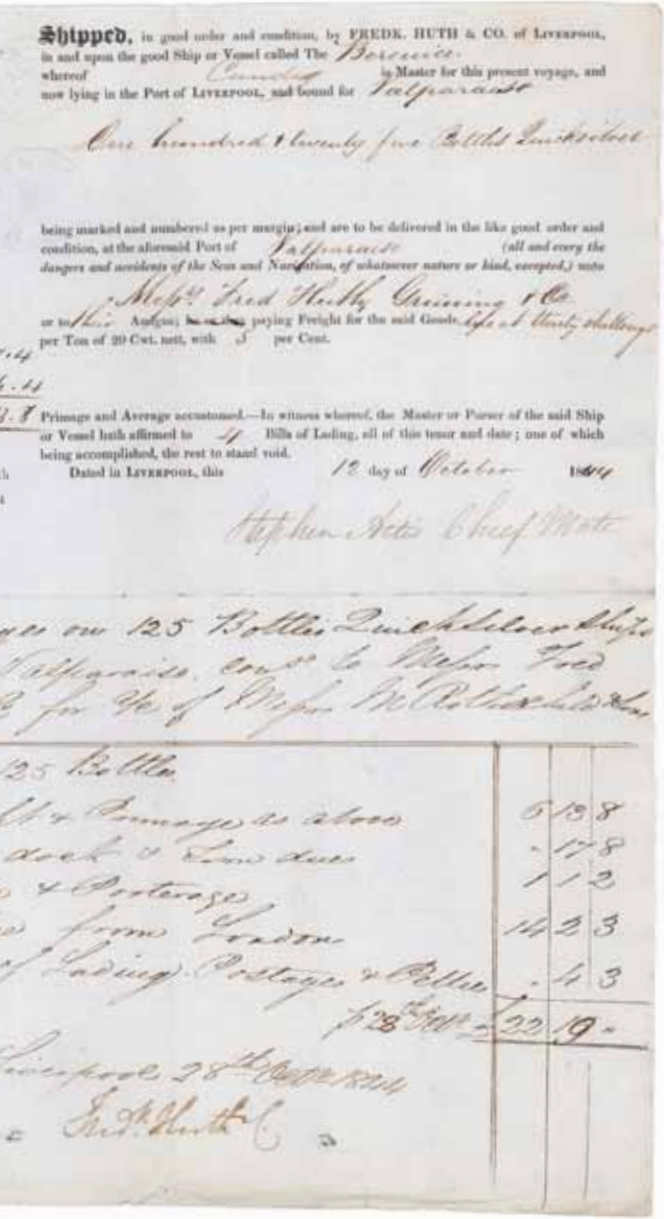 Shipped, in good order and condition, by FREDK. HUTH & CO. of LIVERPOOL,
in and upon the good Ship or Vessel called The Berenice
whereof is Master for this present voyage, and
now lying in the Port of LIVERPOOL, and bound for Valparaiso
One hundred & twenty five Bottles Quicksilver
being marked and numbered as per margin; and are to be delivered in the like good order and
condition, at the aforesaid Port of Valparaiso (all and every the
dangers and accidents of the Seas and Navigation, of whatsoever nature or kind, excepted,) unto
Messrs Fred Huth, Gruning & Co
or to their Assigns; he or they paying Freight for the said Goods, thirty shillings
per Ton of 20 Cwt. nett, with 5 per Cent.
.4
.4
3.8
Primage and Average accustomed.—In witness whereof, the Master or Purser of the said Ship
or Vessel hath affirmed to 4 Bills of Lading, all of this tenor and date; one of which
being accomplished, the rest to stand void.
Dated in LIVERPOOL, this 12 day of October 1844
Stephen Chief Mate
ges on 125 Bottles Quicksilver Ship
Valparaiso, cons to Messrs Fred
for of Messrs N M Rothschild & Sons
125 Bottles
& Primage as above 6 13 8
dock & Town dues - 17 8
& Porterage 1 1 2
from London 14 2 3
of Lading Postages & Petties - 4 3
28th Octr £ 22 19 -
Liverpool 28th Octr 1844
Fredk Huth & C